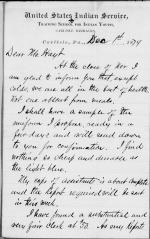 United States Indian Service,
Training School for Indian Youths,
Carlisle Barracks,
Carlisle, Pa., Dec 1st 1879
Dear Mr Hayt
At the close of Nov. I
am glad to inform you that except
colds, we are all in the best of health
not one absent from meals.
I shall have a sample of the
uniform I propose, ready in a
few days and will send down
to you for confirmation. I find
nothing so cheap and durable as
the light blue.
My of assistants is about complete
and the Report required will be sent
in this week.
I have found a substantial and
very fair clerk at